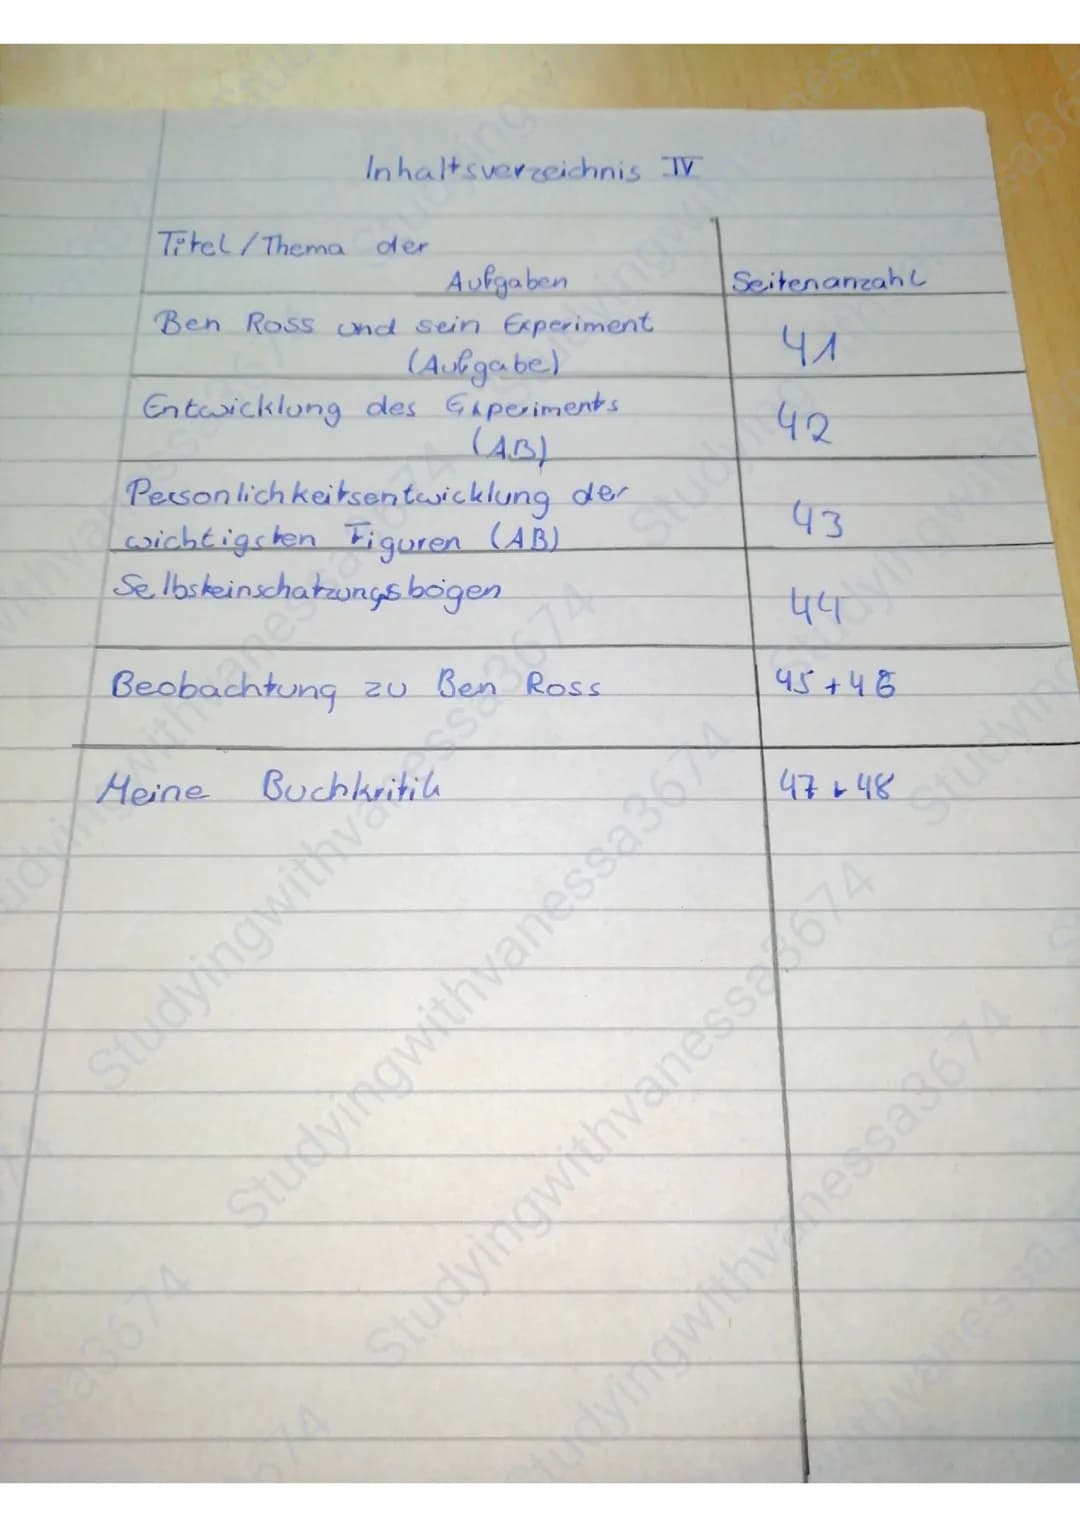 Inhaltsverzeichnis IV
Titel / Thema der
Aufgaben
Seitenanzahl
Ben Ross und sein Experiment
(Aufgabe)
41
Entwicklung des Experiments
(AB)
42
Persönlichkeitsentwicklung der
wichtigsten Figuren (AB)
43
Selbsteinschatzungsbögen
44
Beobachtung zu Ben Ross
45 + 46
Meine Buchkritik
47 + 48
Studyingwithvanessa3674